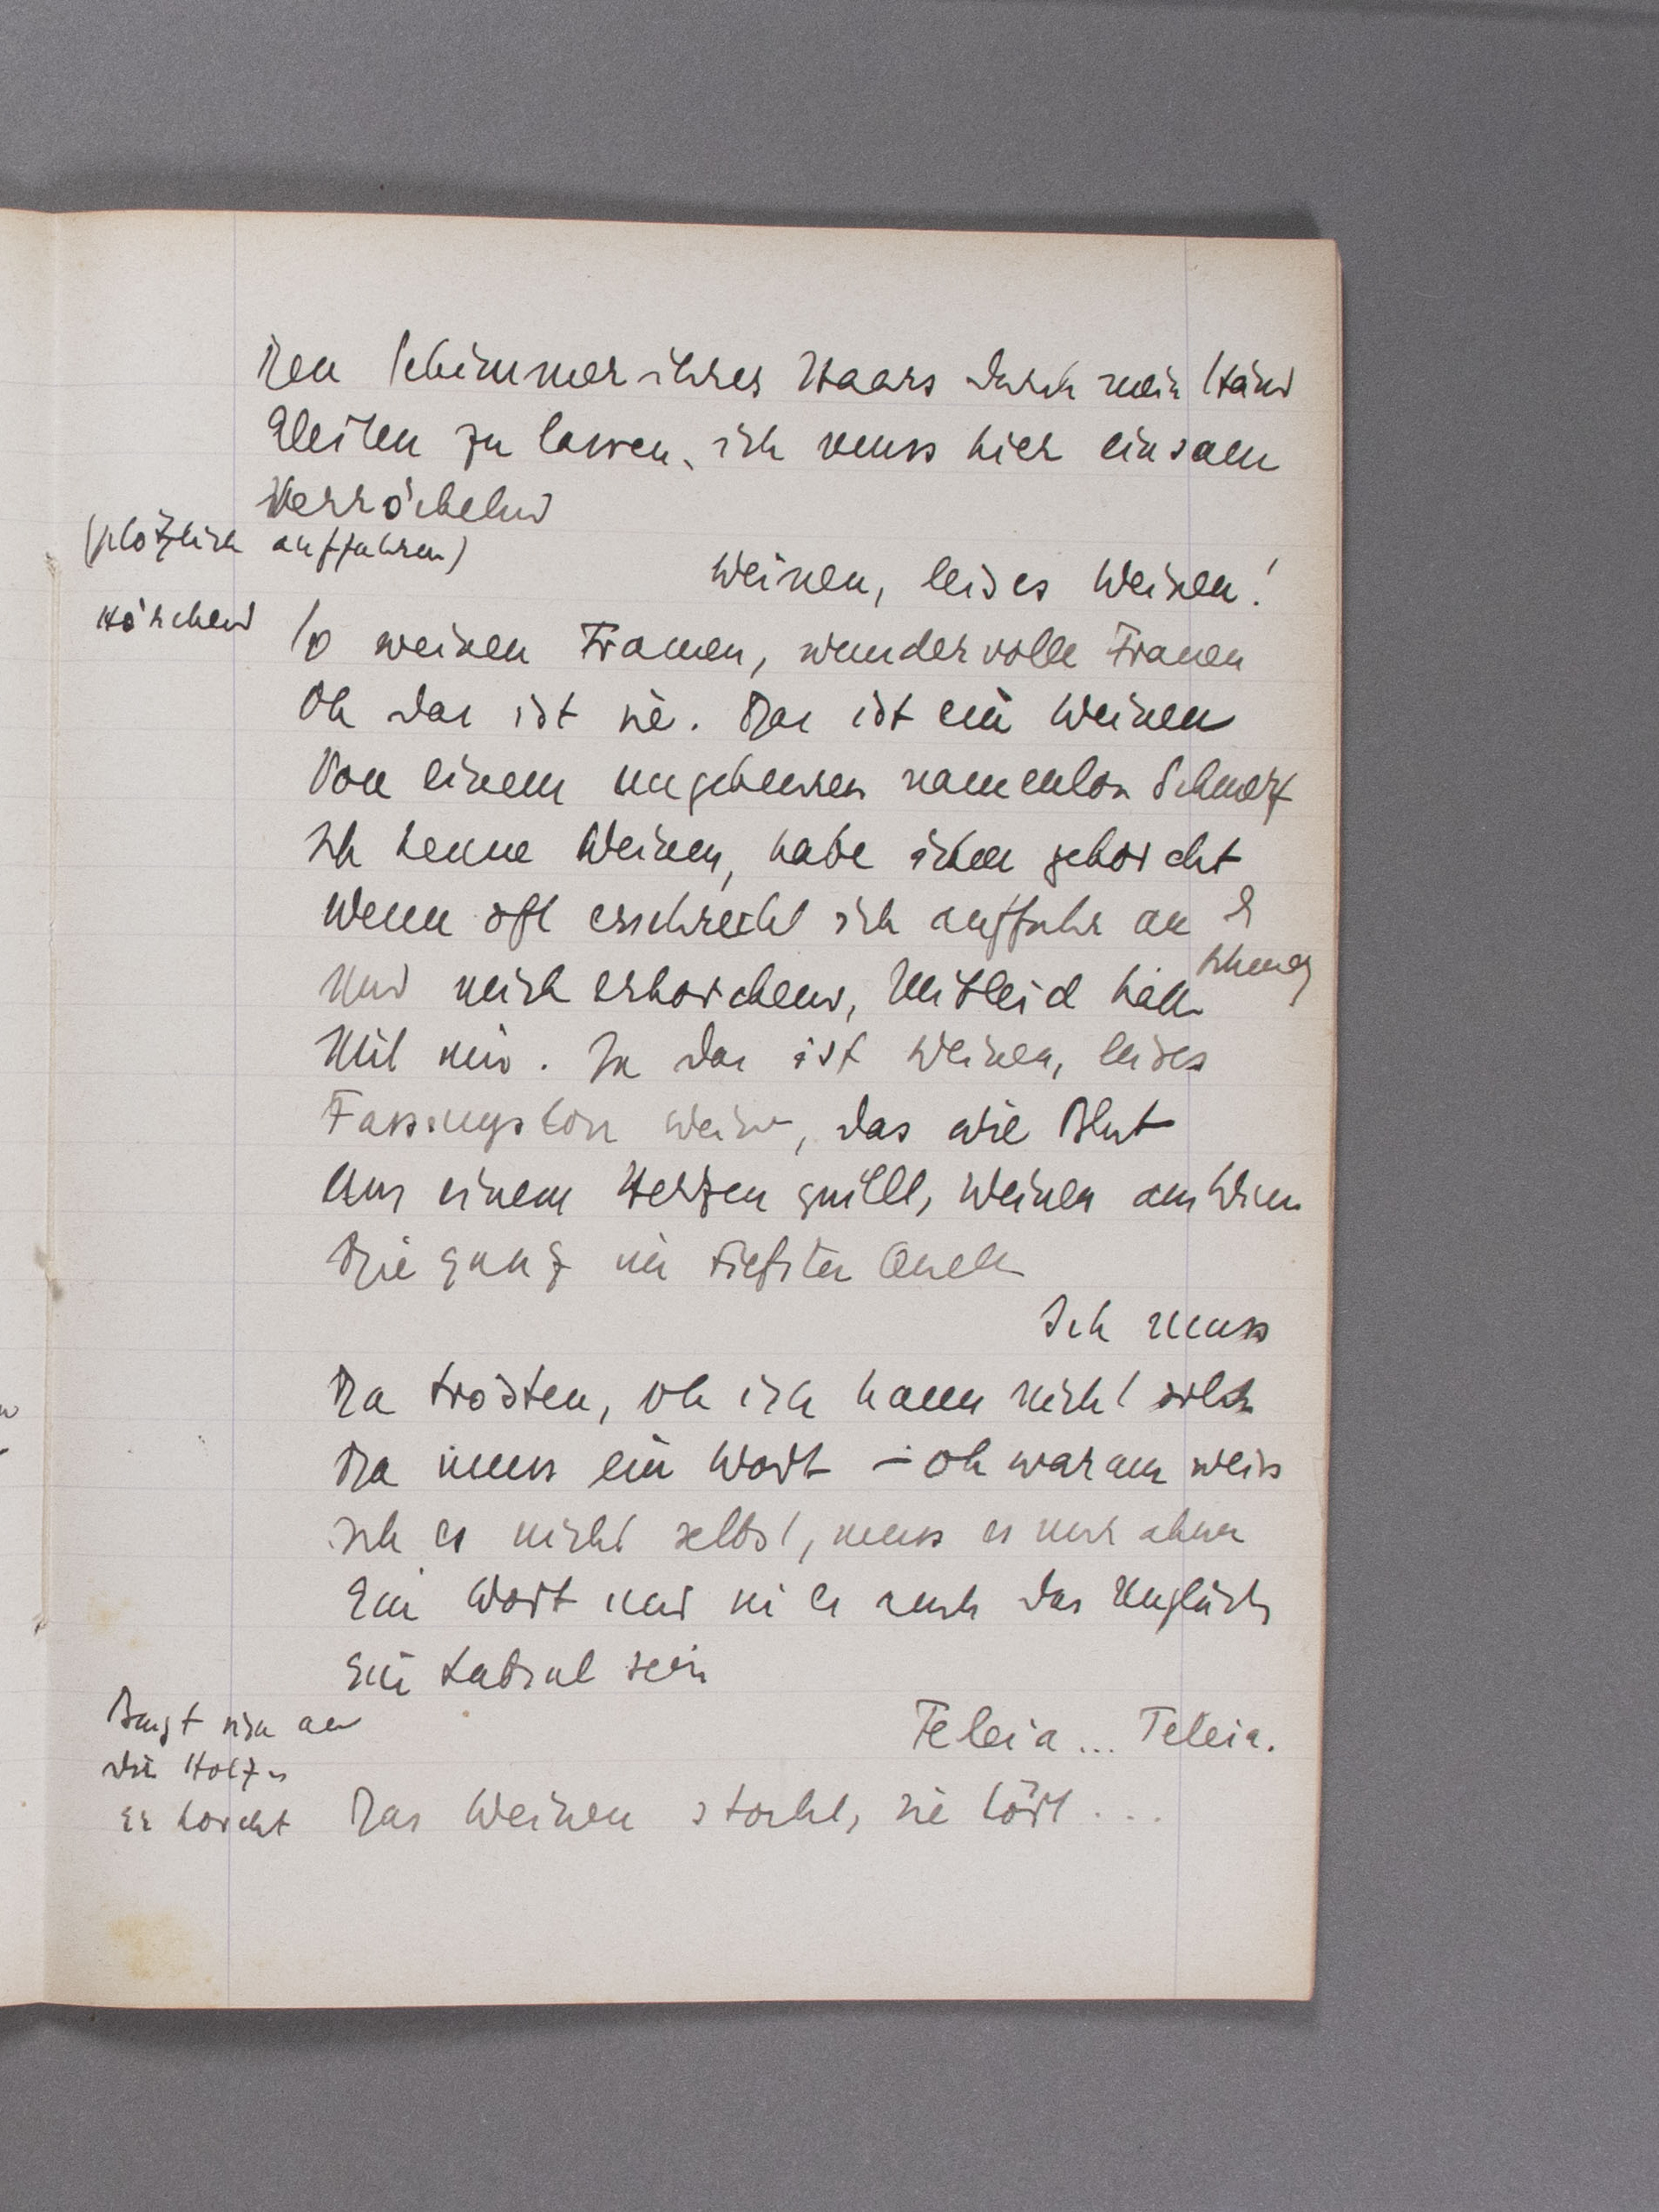 Den Schimmer ihres Haars durch mein Händ
Gleiten zu lassen, ich muss hier einsam
Verröchelnd
(plötzlich auffahren)
Weinen, leises Weinen!
Hörchend So weinen Frauen, wundervolle Frauen
Oh das ist sie. Das ist ein Weinen
Von einem ungeheuren namenlosn Schmerz
Ich kenne Weinen, habe ihm gehorcht
Wenn oft erschreckt ich auffuhr an
Schmerz
Und mich erhorchend, Mitleid hatt
Mit mir. Ja das ist Weinen, leises
Fassungslosn Weinen, das wie Blut
Aus einem Herzen quillt, Weinen aus
Die ganz in tiefster Quelle
Ich muss
Da trösten, oh ich kann nicht
Da muss ein Wort – oh warum weiss
Ich es nicht selbst, muss es nur ahnen
Ein Wort und sei es auch das Unglück
Ein Labsal sein
Beugt sich an
die Holz
Teleia... Teleia.
Er horcht Das Weinen stockt, sie hört...